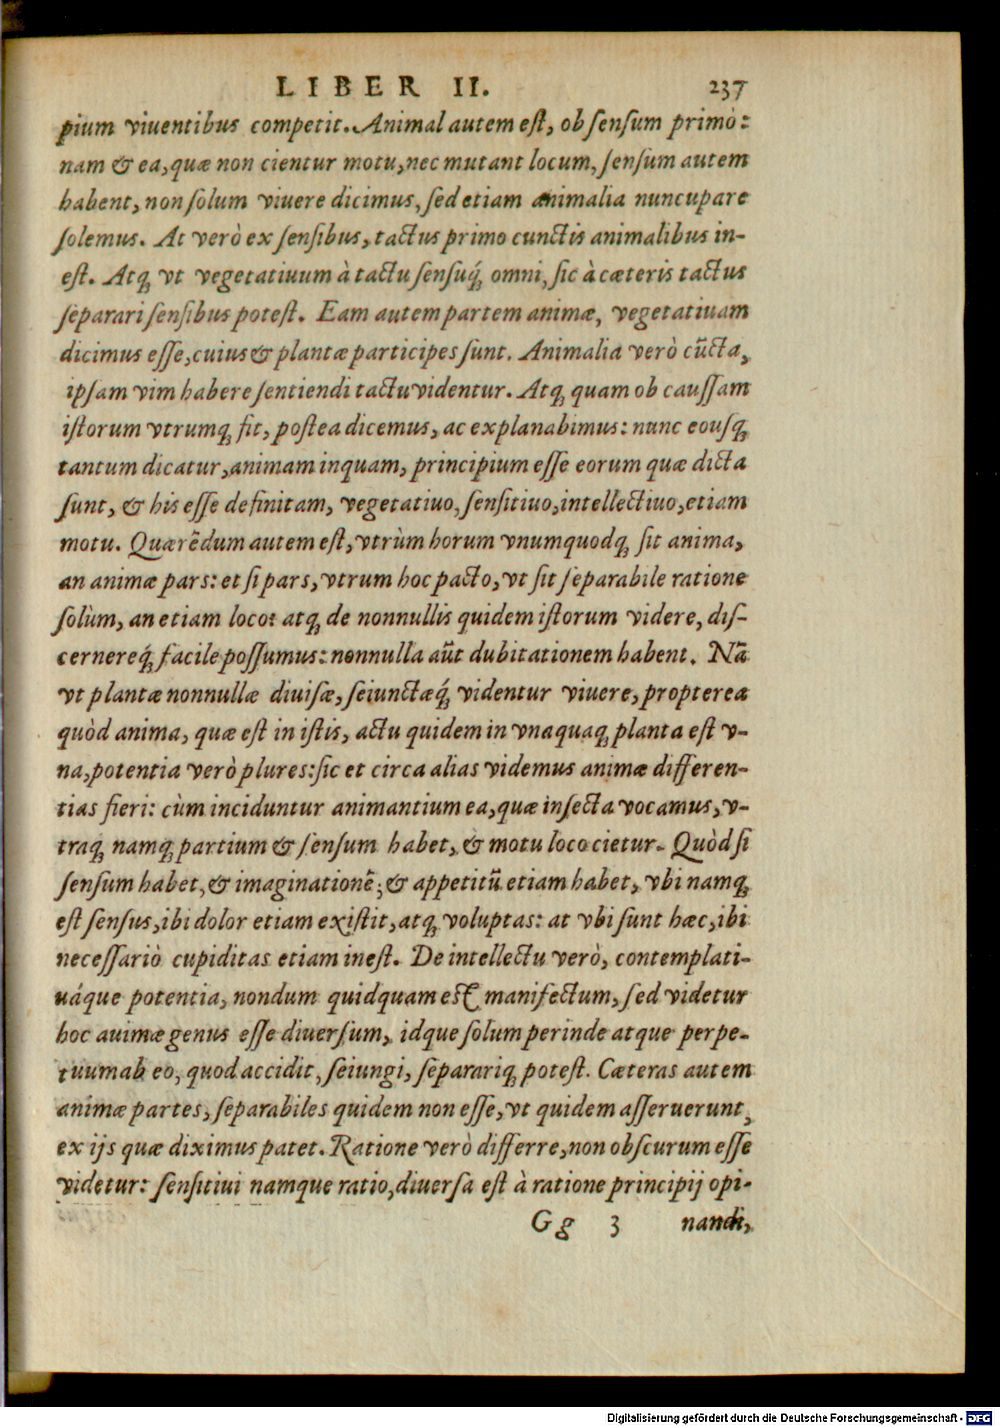 LIBER II. 237
pium viuentibus competit. Animal autem eſt, ob ſenſum primò:
nam & ea, quæ non cientur motu, nec mutant locum, ſenſum autem
habent, non ſolum viuere dicimus, ſed etiam animalia nuncupare
ſolemus. At verò ex ſenſibus, tactus primo cunctis animalibus in-
eſt. Atq; vt vegetatiuum à tactu ſenſuq́; omni, ſic à cæteris tactus
ſeparari ſenſibus poteſt. Eam autem partem animæ, vegetatiuam
dicimus eſſe, cuius & plantæ participes ſunt. Animalia verò cũcta,
ipſam vim habere ſentiendi tactu videntur. Atq; quam ob cauſſam
iſtorum vtrumq; fit, poſtea dicemus, ac explanabimus: nunc eouſq;
tantum dicatur, animam inquam, principium eſſe eorum quæ dicta
ſunt, & his eſſe definitam, vegetatiuo, ſenſitiuo, intellectiuo, etiam
motu. Quærẽdum autem eſt, vtrùm horum vnumquodq; ſit anima,
an animæ pars: et ſi pars, vtrum hoc pacto, vt ſit ſeparabile ratione
ſolùm, an etiam loco: atq; de nonnullis quidem iſtorum videre, diſ-
cernereq́; facile poſſumus: nonnulla aũt dubitationem habent. Nã
vt plantæ nonnullæ diuiſæ, ſeiunctæq́; videntur viuere, propterea
quòd anima, quæ eſt in iſtis, actu quidem in vnaquaq; planta eſt v-
na, potentia verò plures: ſic et circa alias videmus animæ differen-
tias fieri: cùm inciduntur animantium ea, quæ inſecta vocamus, v-
traq; namq; partium & ſenſum habet, & motu loco cietur. Quòd ſi
ſenſum habet, & imaginationẽ; & appetitũ etiam habet, vbi namq;
eſt ſenſus, ibi dolor etiam exiſtit, atq; voluptas: at vbi ſunt hæc, ibi
neceſſariò cupiditas etiam ineſt. De intellectu verò, contemplati-
uáque potentia, nondum quidquam eſt manifectum, ſed videtur
hoc auimæ genus eſſe diuerſum, idque ſolum perinde atque perpe-
tuum ab eo, quod accidit, ſeiungi, ſeparariq; poteſt. Cæteras autem
animæ partes, ſeparabiles quidem non eſſe, vt quidem aſſeruerunt,
ex ijs quæ diximus patet. Ratione verò differre, non obſcurum eſſe
videtur: ſenſitiui namque ratio, diuerſa eſt à ratione principij opi-
Gg 3 nandi,
Digitalisierung gefördert durch die Deutsche Forschungsgemeinschaft - DFG